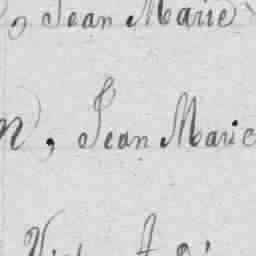 , Jean Marie
n, Jean Marie